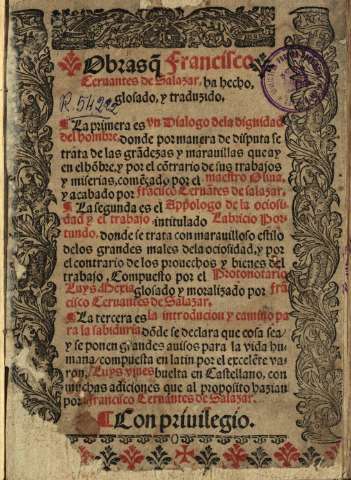 Obras q̃ Francisco
Ceruantes de Salazar, ha hecho,
glosado, y traduzido.
R. 54922
La primera es vn Dialogo dela dignidad
del hombre, donde por manera de disputa se
trata de las grãdezas y marauillas que ay
en el hõbre, y por el cõtrario de sus trabajos
y miserias, comẽçado por el maestro Oliua,
y acabado por frãcisco Ceruãtes de salazar,
La segunda es el Appologo de la ociosi-
dad y el trabajo intitulado Labricio Por-
tundo. donde se trata con marauilloso estilo
delos grandes males dela ociosidad, y por
el contrario de los prouechos y bienes del
trabajo, Compuesto por el Protonotario
Luys Mexia glosado y moralizado por frã
cisco Ceruantes de Salazar.
La tercera es la introducion y camino pa
ra la sabiduria dõde se declara que cosa sea
y se ponen grandes auisos para la vida hu-
mana, compuesta en latin por el excelẽte va-
ron, Luys viues buelta en Castellano, con
muchas adiciones que al proposito hazian
por francisco Ceruantes de Salazar.
Con priuilegio.